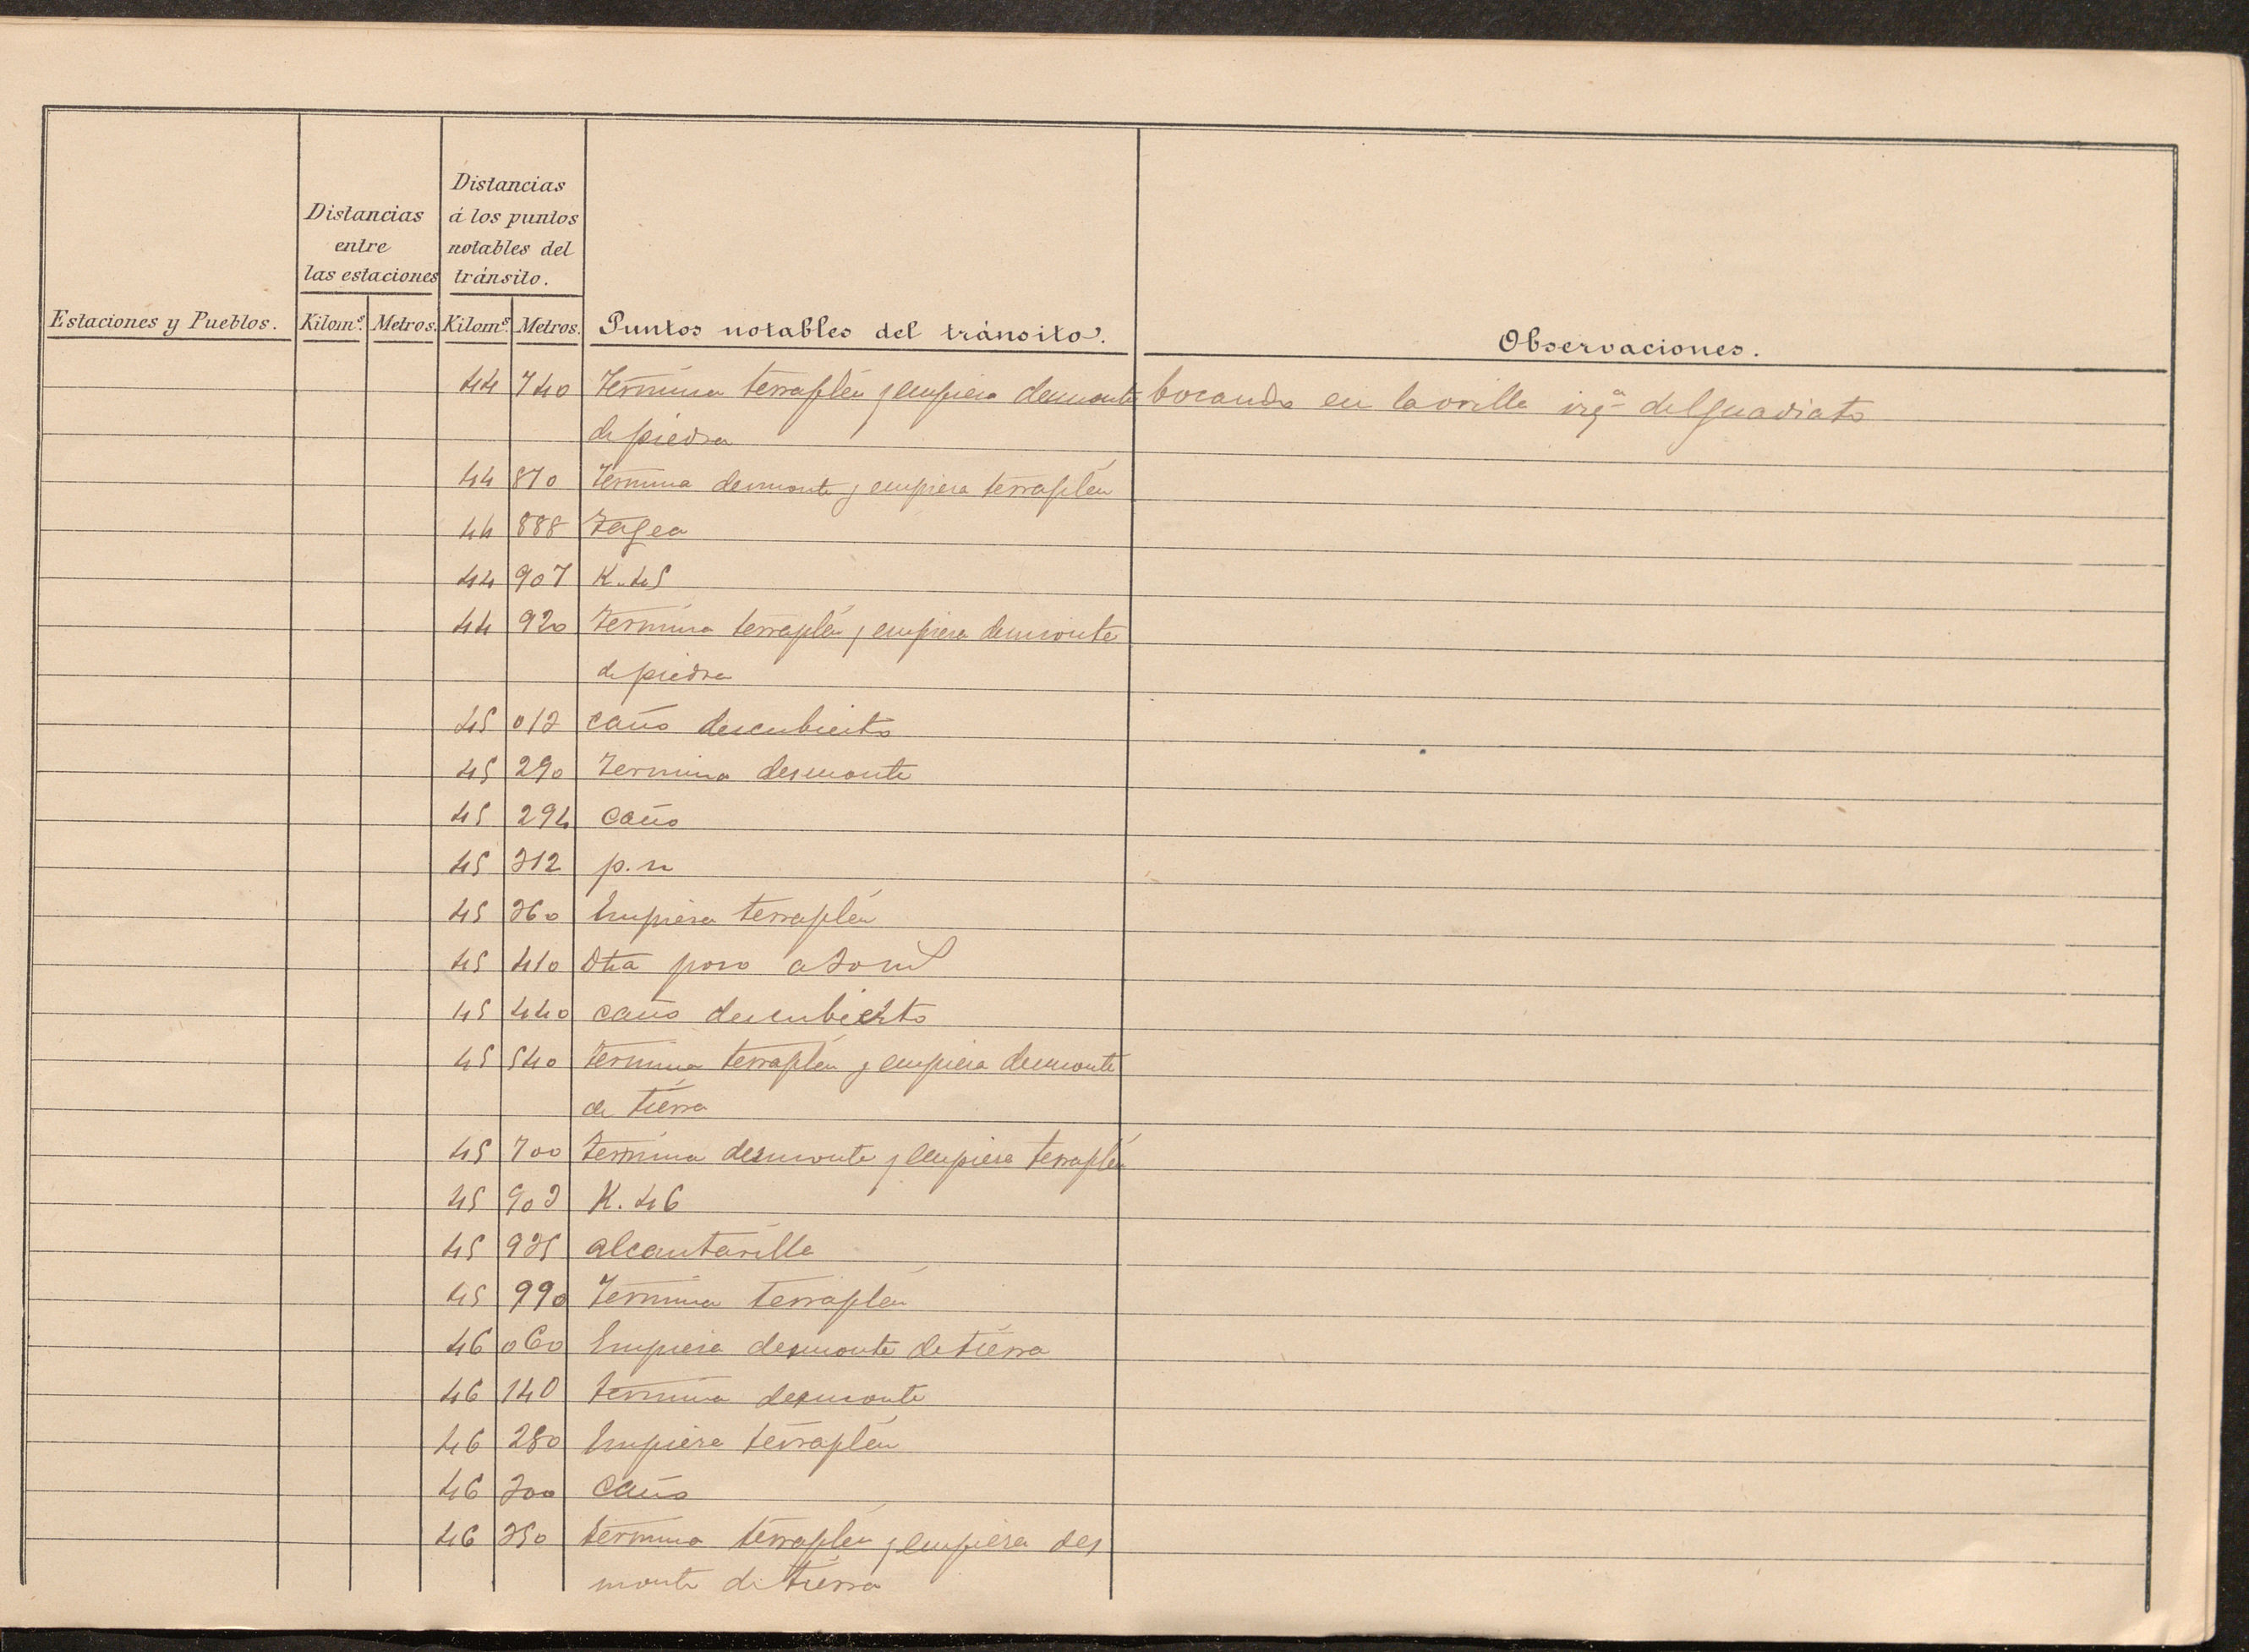 Estaciones y Pueblos.
Distancias
entre
las estaciones
Kilomˢ. Metros.
Distancias
á los puntos
notables del
tránsito.
Kilomˢ. Metros.
Puntos notables del tránsito.
Observaciones.
44 740 Termina terraplén y empieza desmonte bocando en la orilla izqª del Guadiato
de piedra
44 870 Termina desmonte y empieza terraplén
44 888 Tagea
44 907 K. 45
44 920 Termina terraplén y empieza desmonte
de piedra
45 013 caño descubierto
45 290 Termina desmonte
45 294 caño
45 312 p. n
45 360 Empieza terraplén
45 410 Otra paso a
45 440 caño descubierto
45 540 termina terraplén y empieza desmonte
de tierra
45 700 termina desmonte y empieza terraplén
45 903 K. 46
45 935 alcantarilla
45 990 Termina terraplén
46 060 Empieza desmonte de tierra
46 140 termina desmonte
46 280 Empieza terraplén
46 300 caño
46 350 termina terraplén y empieza des
monte de tierra